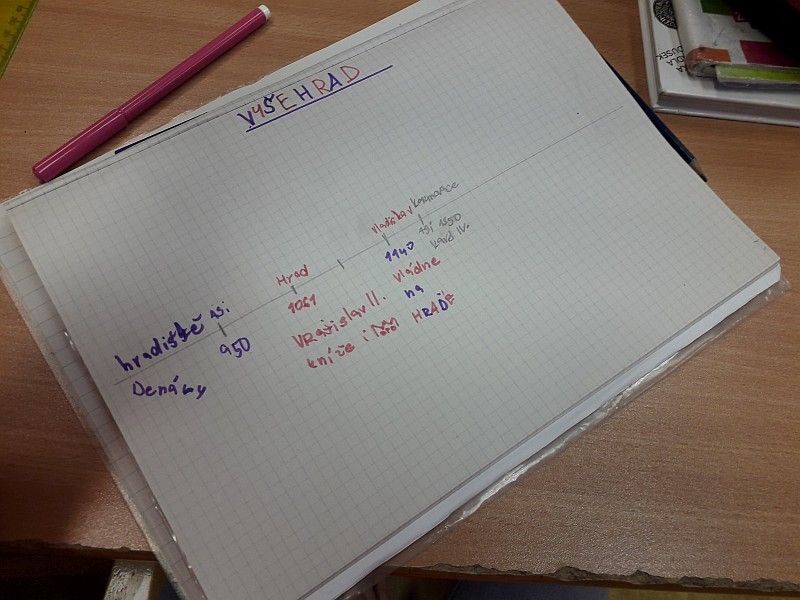 VYŠEHRAD
hradiště asi
950
Denáry
Hrad
1061
Vratislav II.
kníže i
Vladislav
1140
vládne
na
HRADĚ
Korunovace
asi 1350
Karel IV.